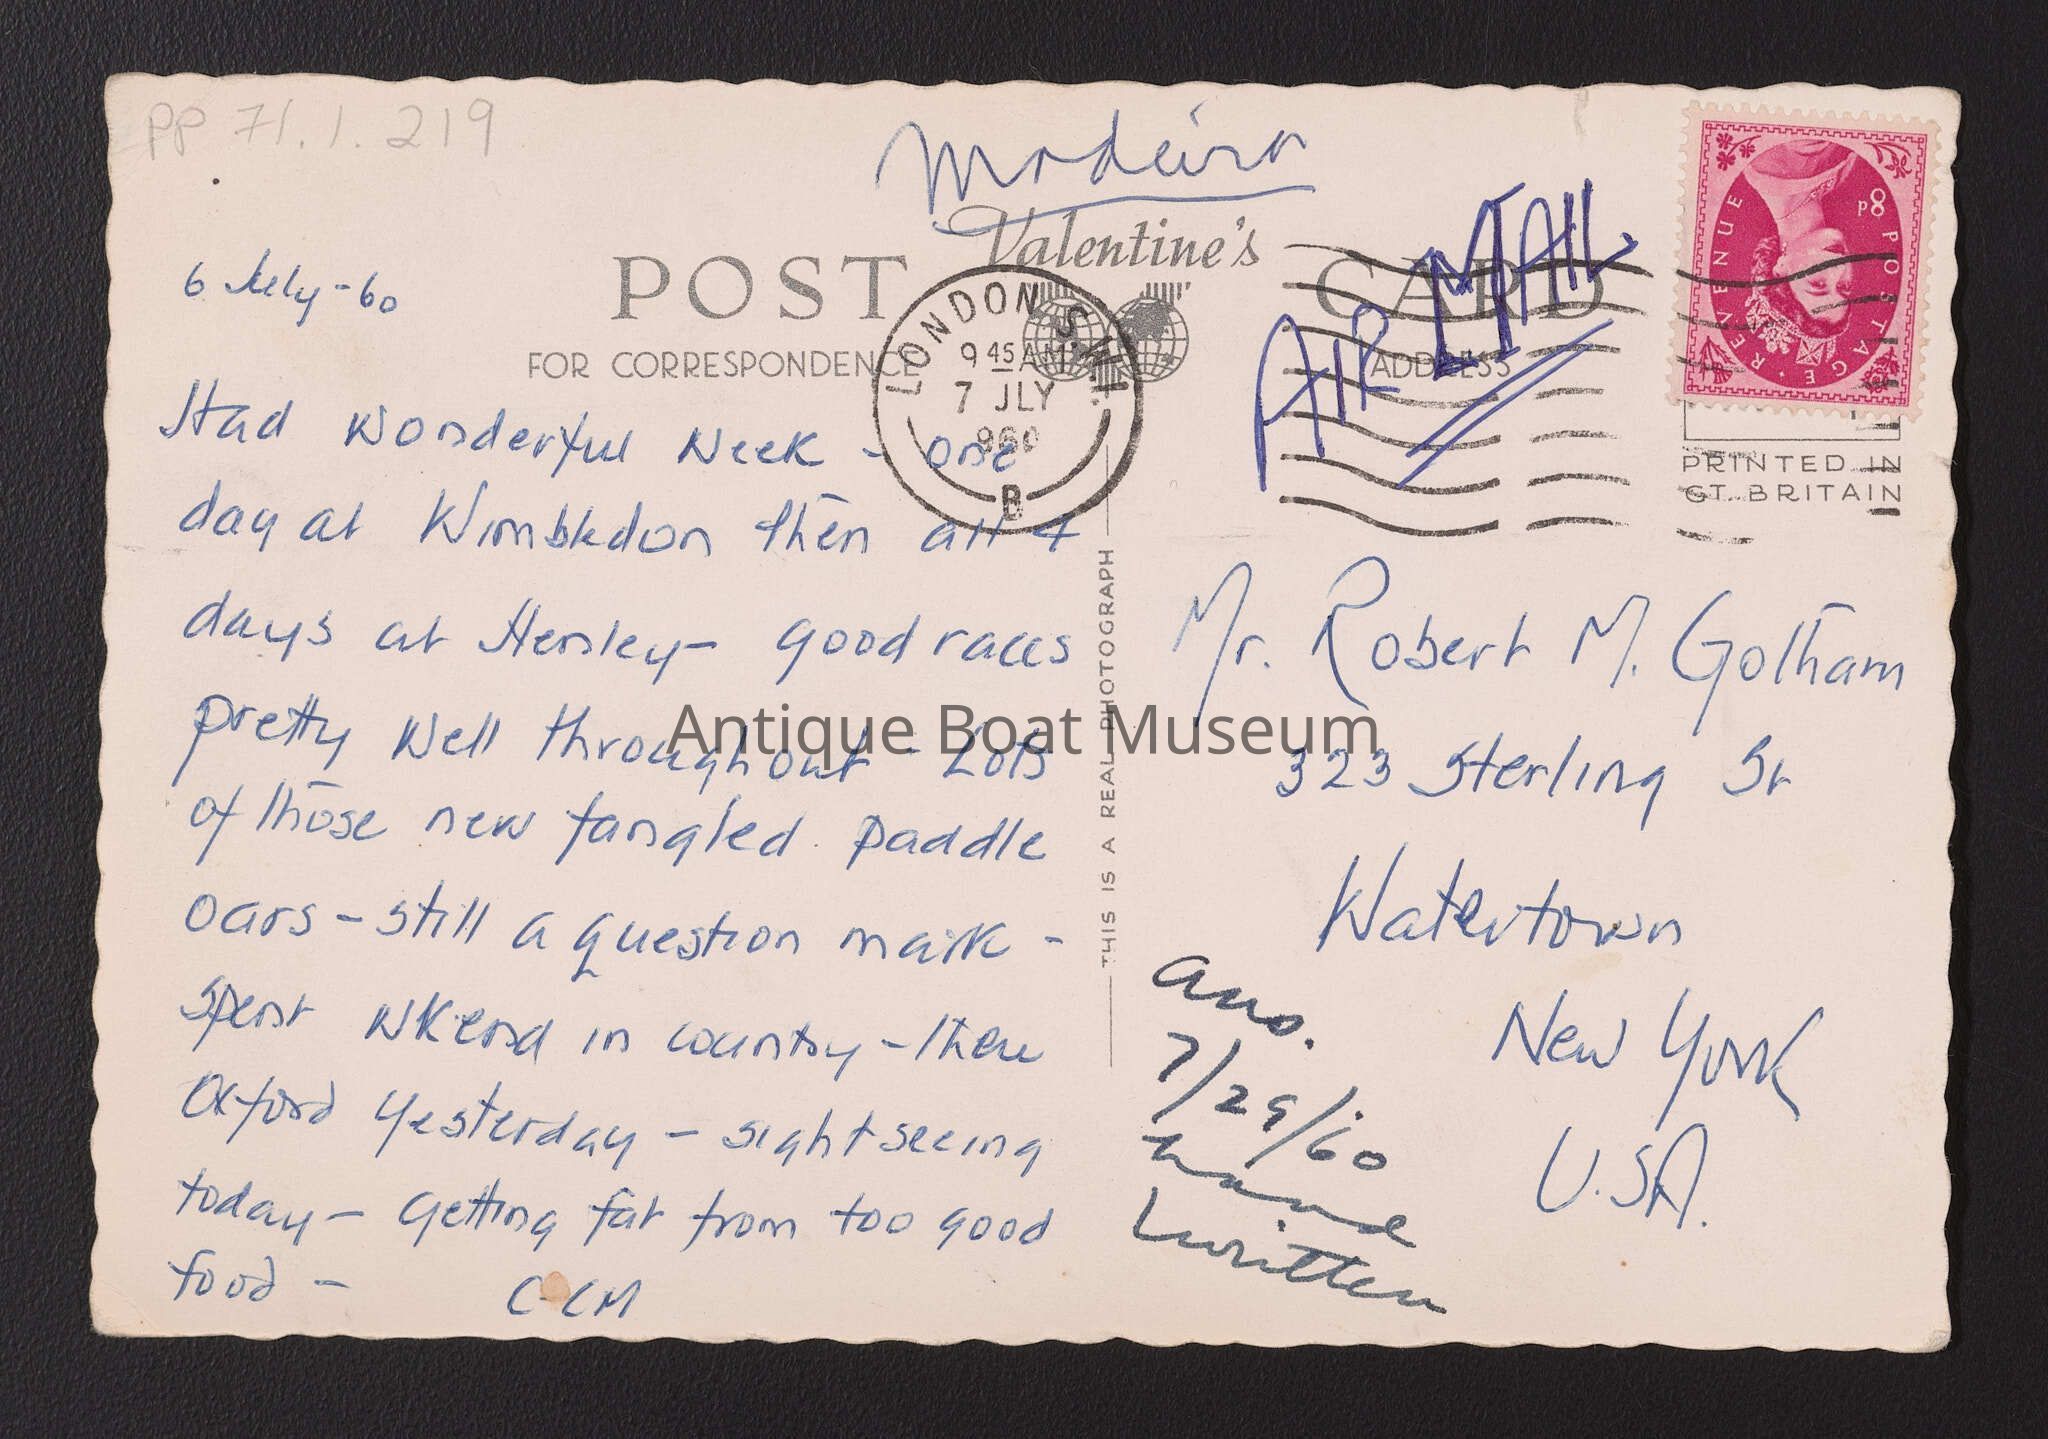 PP 71.1.219
Madeira
Valentine's
POST CARD
FOR CORRESPONDENCE
ADDRESS
AIR MAIL
LONDON S.W.1.
9 45 AM
7 JLY
960
B
8d
POSTAGE REVENUE
PRINTED IN
GT. BRITAIN
6 July - 60
Had Wonderful Week - one
day at Wimbledon then all 4
days at Henley - good races
pretty well throughout - Lots
of those new fangled paddle
oars - still a question mark -
spent WKend in country - then
Oxford yesterday - sightseeing
today - getting fat from too good
food - C-CM
THIS IS A REAL PHOTOGRAPH
Mr. Robert M. Gotham
323 Sterling St
Watertown
New York
U.S.A.
ans.
7/29/60
hand
written
Antique Boat Museum